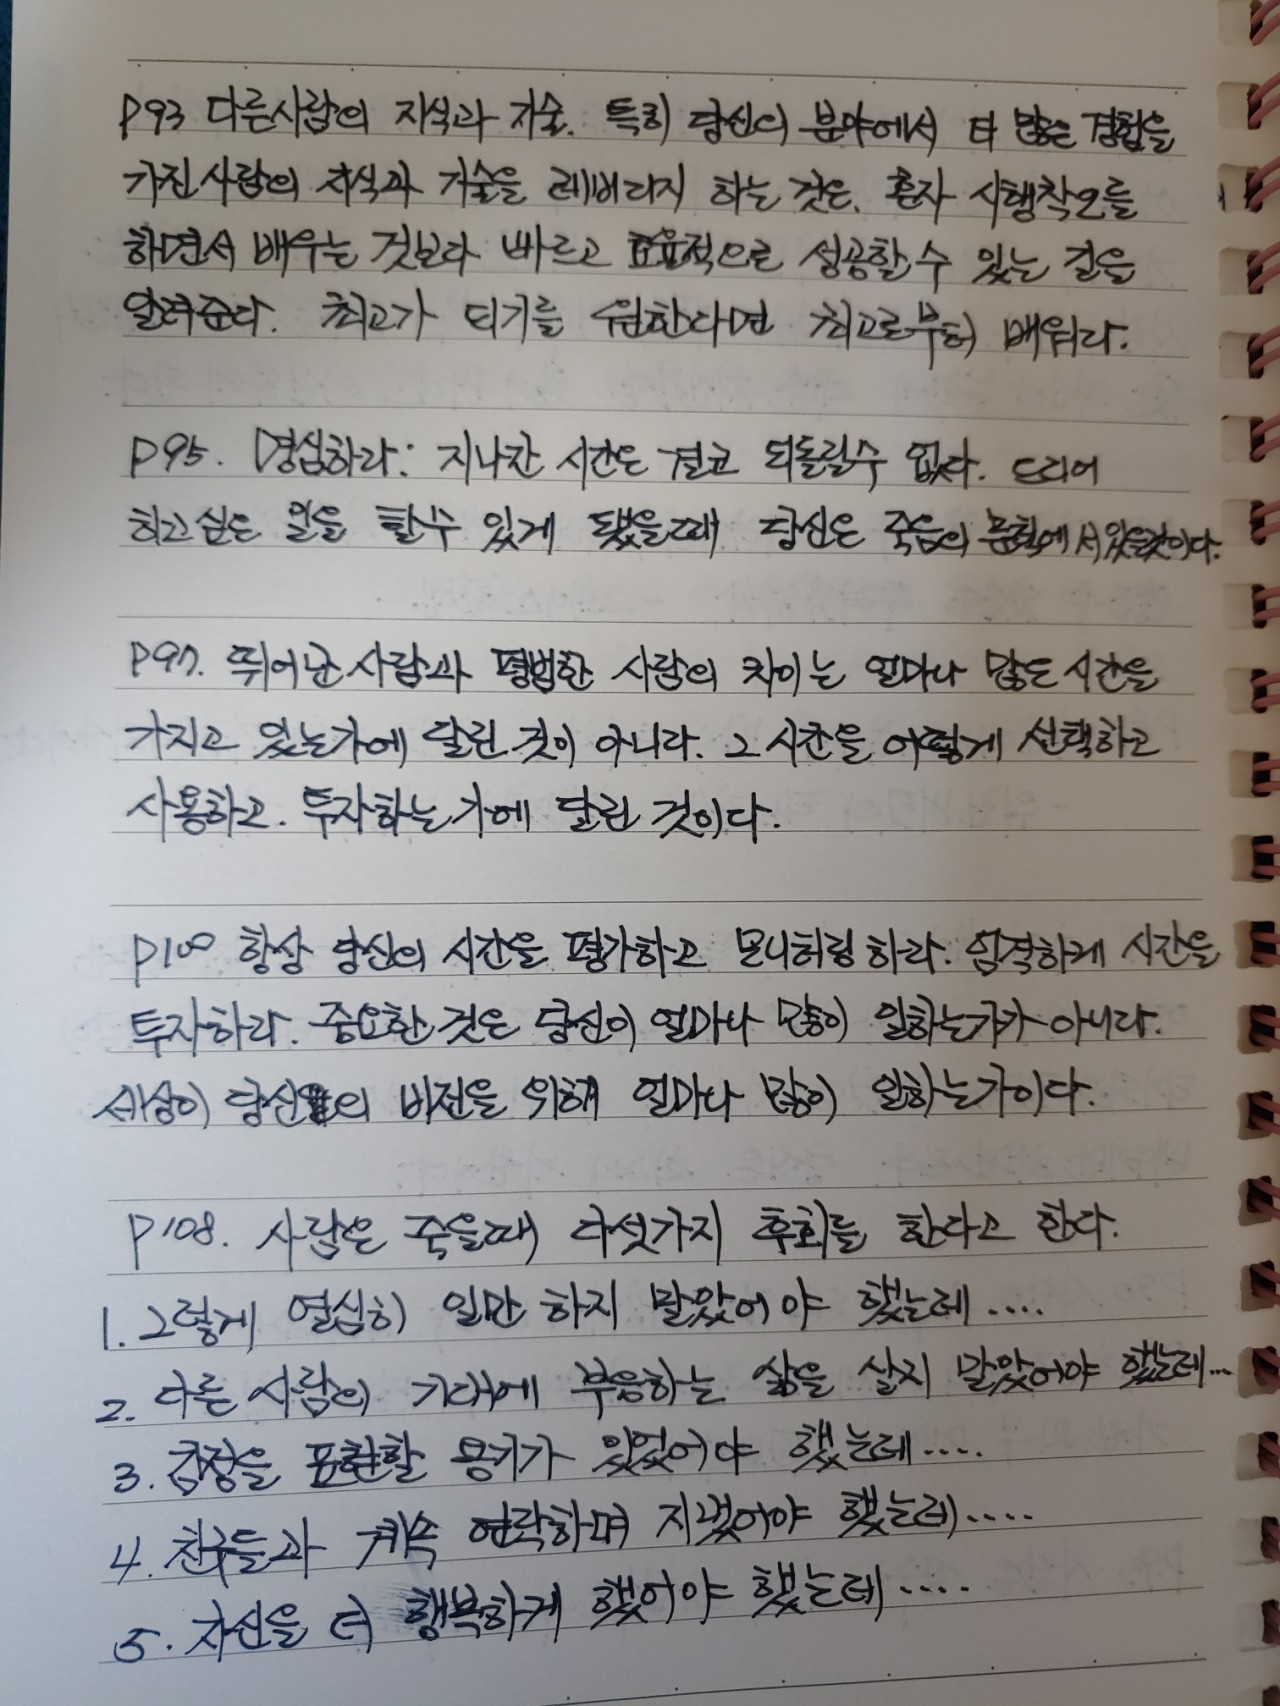 P93 다른사람의 지식과 기술. 특히 당신의 분야에서 더 많은 경험을
가진 사람의 지식과 기술을 레버리지 하는 것은. 혼자 시행착오를
하면서 배우는 것보다 빠르고 효율적으로 성공할 수 있는 길을
알려준다. 최고가 되기를 원한다면 최고로부터 배워라.
P95. 명심하라: 지나간 시간은 결코 되돌릴수 없다. 드디어
하고 싶은 일을 할수 있게 됐을때 당신은 죽음의 문턱에 서있을것이다.
P97. 뛰어난 사람과 평범한 사람의 차이는 얼마나 많은 시간을
가지고 있는가에 달린 것이 아니라. 그 시간을 어떻게 선택하고
사용하고. 투자하는가에 달린 것이다.
P100 항상 당신의 시간을 평가하고 모니터링 하라. 엄격하게 시간을
투자하라. 중요한 것은 당신이 얼마나 많이 일하는가가 아니라.
세상이 당신의 비전을 위해 얼마나 많이 일하는가이다.
P108. 사람은 죽을때 다섯가지 후회를 한다고 한다.
1. 그렇게 열심히 일만 하지 말았어야 했는데....
2. 다른 사람의 기대에 부응하는 삶을 살지 말았어야 했는데...
3. 감정을 표현할 용기가 있었어야 했는데....
4. 친구들과 계속 연락하며 지냈어야 했는데....
5. 자신을 더 행복하게 했어야 했는데....